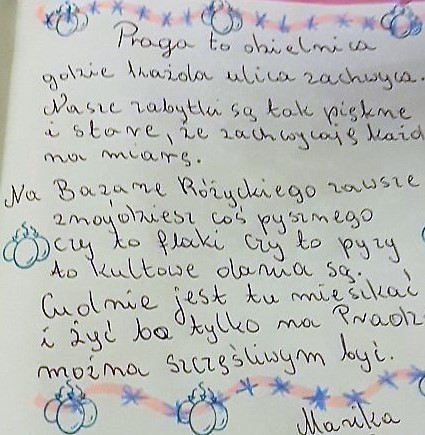 Praga to dzielnica
gdzie każda ulica zachwyca.
Nasze zabytki są tak piękne
i stare, że zachwycają każd
na miarę.
Na Bazarze Różyckiego zawsze
znajdziesz coś pysznego
czy to flaki czy to pyzy
to kultowe dania są.
Cudnie jest tu mieszkać
i żyć bo tylko na Pradz
można szczęśliwym być.
Marika